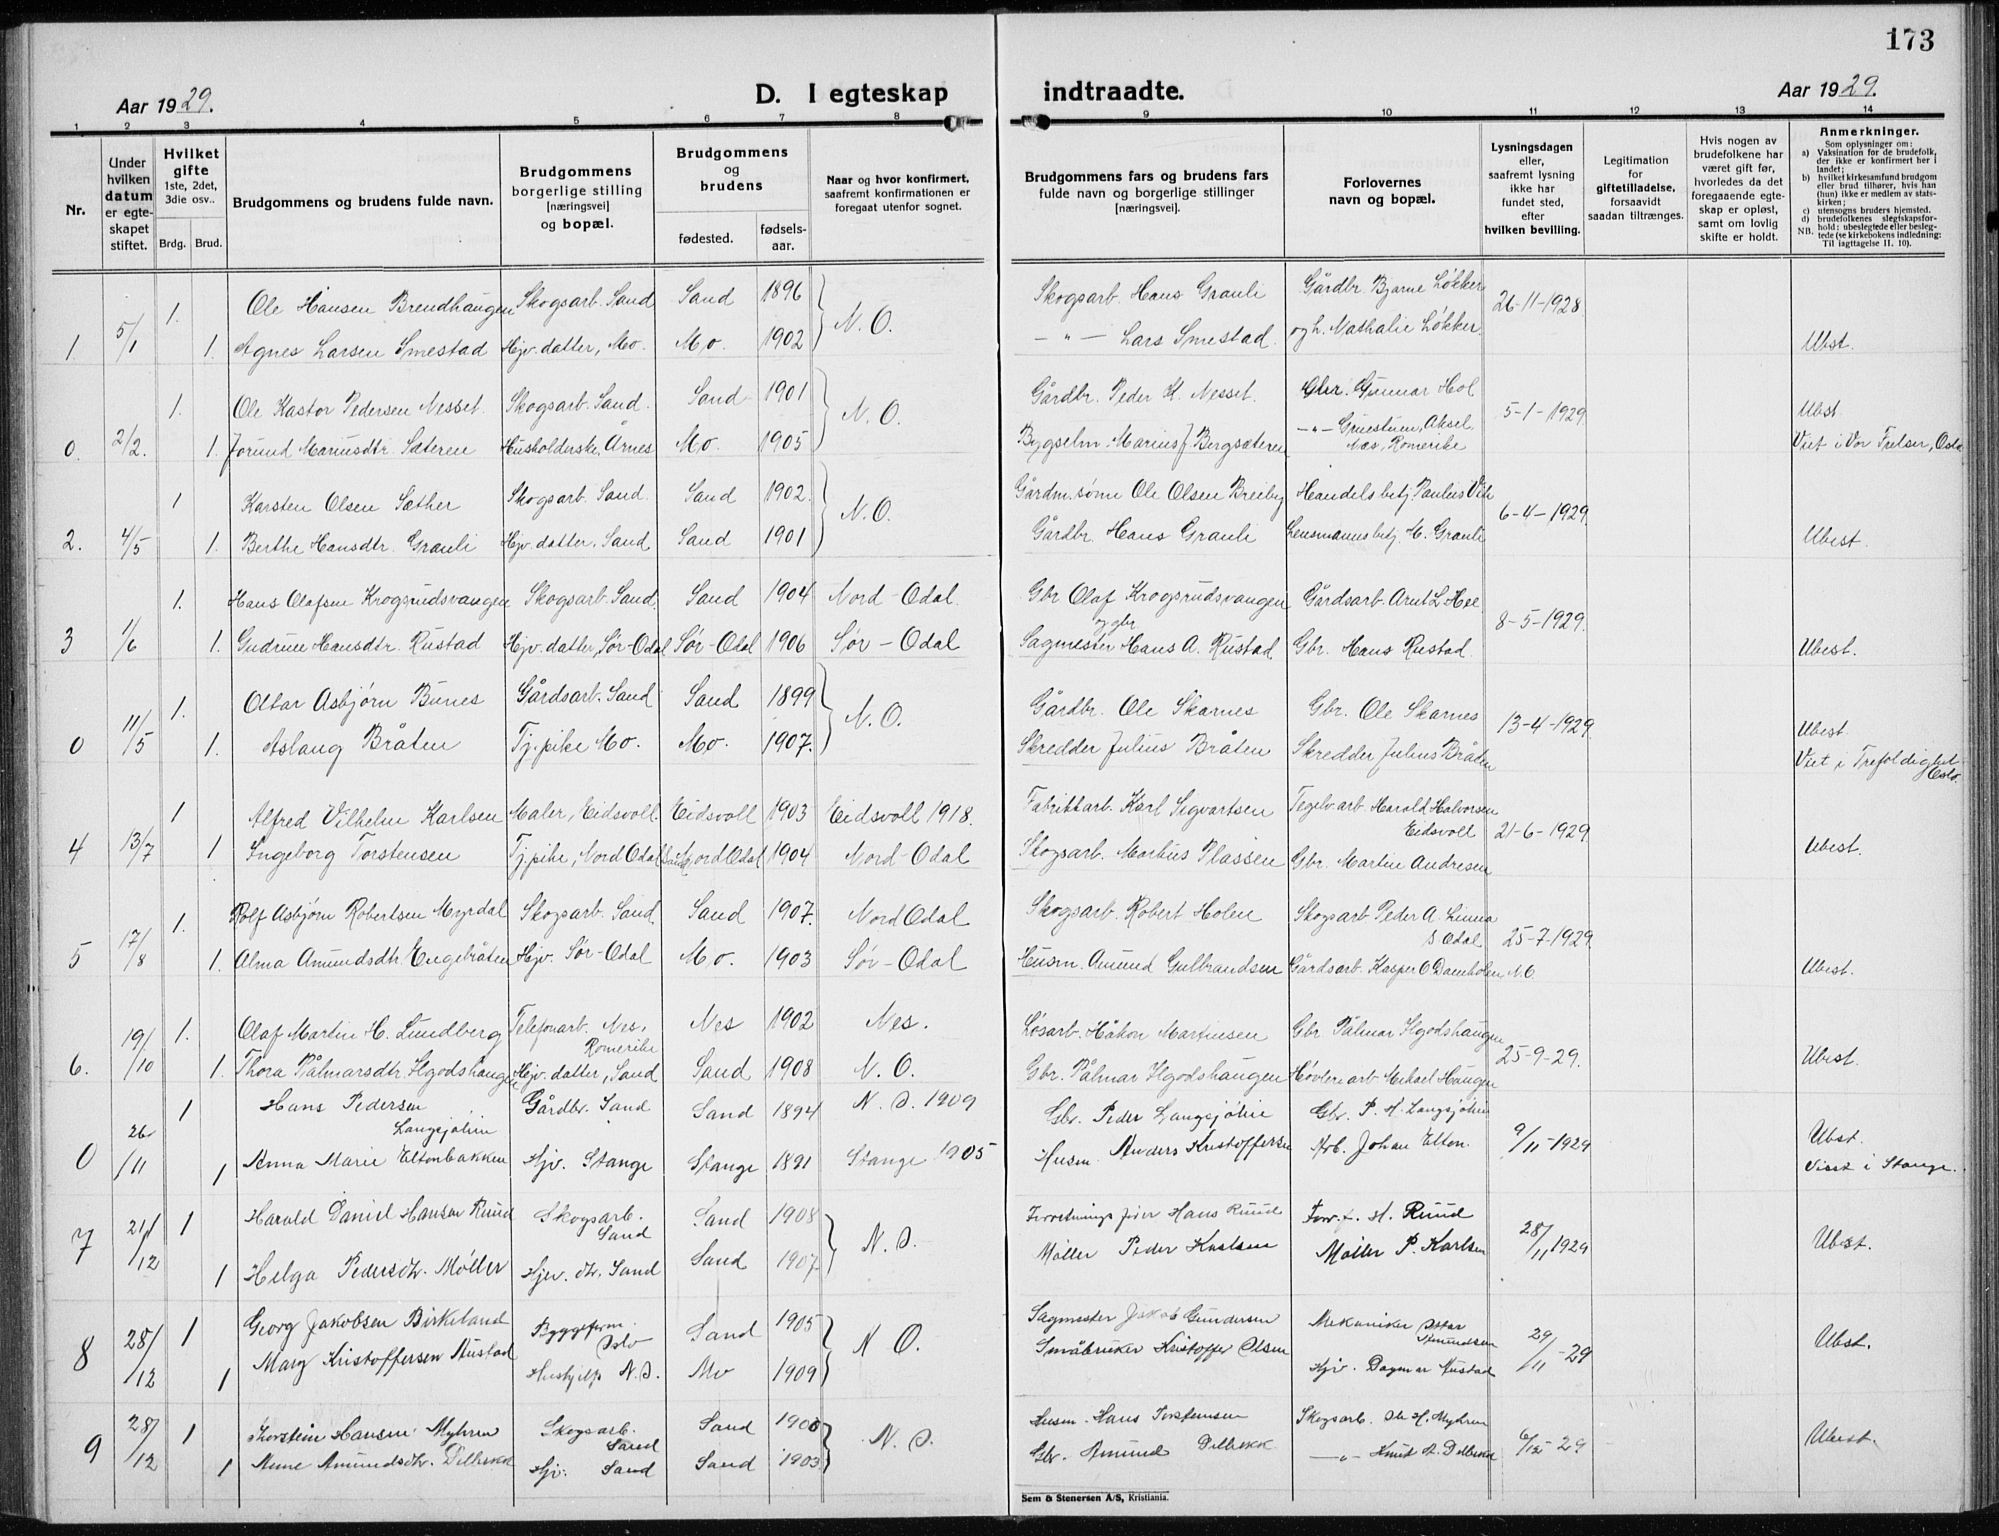 173
Aar 1929.
D. I egteskap indtraadte.
Aar 1929.
1 2 3 4 5 6 7 8 9 10 11 12 13 14
Nr.
Under hvilken datum er egteskapet stiftet.
Hvilket gifte
1ste, 2det, 3die osv..
Brdg. Brud.
Brudgommens og brudens fulde navn.
Brudgommens borgerlige stilling [næringsvei] og bopæl.
Brudgommens og brudens
fødested.
fødselsaar.
Naar og hvor konfirmert, saafremt konfirmationen er foregaat utenfor sognet.
Brudgommens fars og brudens fars fulde navn og borgerlige stillinger [næringsvei].
Forlovernes navn og bopæl.
Lysningsdagen eller, saafremt lysning ikke har fundet sted, efter hvilken bevilling.
Legitimation for giftetilladelse, forsaavidt saadan tiltrænges.
Hvis nogen av brudefolkene har været gift før, hvorledes da det foregaaende egteskap er opløst, samt om lovlig skifte er holdt.
Anmerkninger.
Som oplysninger om:
a) Vaksination for de brudefolk, der ikke er konfirmert her i landet;
b) hvilket kirkesamfund brudgom eller brud tilhører, hvis han (hun) ikke er medlem av statskirken;
c) utensogns bruders hjemsted.
d) brudefolkenes slegtskapsforhold: ubeslegtede eller beslegtede (se kirkebokens indledning: Til iagttagelse II. 10).
NB.
1. Ole Hansen Brendhaugen Skogsarb. Sand Sand 1896 N. O. Skogsarb. Hans Grauli Gårdbr. Bjarne Løkker 26-11-1928
5/1 1. Agnes Larsen Smestad Hjv. datter, Mo. Mo. 1902 — " — Lars Smestad. og h. Nathalie Løkker. Ubst.
1. Ole Kastor Pedersen Nesset. Skogsarb. Sand. Sand 1901 N. O. Gårdbr. Peder K. Nesset. Gbr. Gunnar Hol 5-1-1929 Ubst
0. 2/2. 1. Jorund Mariusdtr. Sæteren Husholderske, Årnes Mo. 1905 Bygselm. Marius J. Bergsæteren Nes, Romerike Viet i Vor Frelser, Oslo
1 Karsten Olsen Sæther Skogsarb. Sand. Sand 1902. N. O. Gårdm.sønn Ole Olsen Breiby Handelsbetj. Paulius 6-4-1929
2. 4/5 1. Berthe Hansdtr. Grauli Hjv. datter, Sand Sand 1901 Gårdbr. Hans Grauli Lensmannsbetj. H. Grauli Ubest.
1. Hans Olafsen Krogsrudsvangen Skogsarb. Sand. Sand 1904 Nord-Odal. Gbr Olaf Krogsrudsvangen Gårdsarb. Arnt L. Hee 8-5-1929.
3 1/6 1. Gudrun Hansdtr. Rustad Hjv. datter, Sør-Odal Sør-Odal 1906 Sør-Odal Sagmester og gbr Hans A. Rustad Gbr. Hans Rustad. Ubest.
1. Ottar Asbjørn Bunes Gårdsarb. Sand Sand 1899 N. O. Gårdbr. Ole Skarnes Gbr. Ole Skarnes 13-4-1929 Ubest.
0 11/5 1. Aslaug Bråten Tj. pike Mo. Mo. 1907. Skredder Julius Bråten Skredder Julius Bråten Viet i Trefoldighet Oslo.
1 Alfred Vilhelm Karlsen Maler, Eidsvoll. Eidsvoll 1903 Eidsvoll 1918. Fabrikkarb. Karl Sigvartsen Teglv.arb. Harald Halvorsen Eidsvoll 21-6-1929
4 13/7 1 Ingeborg Torstensen Tj.pike, Nord Odal Nord Odal 1904 Nord-Odal Skogsarb. Markus Plassen Gbr. Martin Andresen Ubest.
1. Rolf Asbjørn Robertsen Myrdal Skogsarb. Sand Sand 1907. Nord Odal Skogsarb. Robert Holen Skogsarb Peder A. Linna S Odal 25-7-1929
5 17/8 1. Alma Amundsdtr. Engebråten Hjv. Sør-Odal Mo. 1903 Sør-Odal Husm. Amund Gulbrandsen Gårdsarb. Kasper O Damholen, N.O. Ubest.
1. Olaf Martin H. Lundberg Telefonarb. Nes, Romerike Nes 1902 Nes. Løsarb. Håkon Martinsen Gbr Pålmar Ilgodshaugen 25-9-29.
6. 19/10 1. Thora Pålmarsdtr. Ilgodshaugen Hjv. datter, Sand Sand 1908 N. O. Gbr. Pålmar Ilgodshaugen Høvleriarb Mikael Haugen Ubest.
1 Hans Pedersen Langsjøhin Gårdbr. Sand Sand 1894 N. O. 1909 Gbr. Peder Langsjøhin Gbr. P. H. Langsjøhin 9/11-1929 Ubst.
0 26/11 1 Anna Marie Eltonbakken Hjv. Stange Stange 1891 Stange 1905 Husm. Anders Kristoffersen Arb. Johan Elton. Viet i Stange.
1 Harald Daniel Hansen Ruud Skogsarb. Sand Sand 1908 N. O. Forretningsfører Hans Ruud Forr.f. H. Ruud 28/11 1929
7 21/12 1 Helga Pedersdtr. Møller Hjv. dtr. Sand Sand 1907 Møller Peder Karlsen Møller P. Karlsen Ubest.
1 Georg Jakobsen Birkeland Byggeform. Oslo Sand 1905 N O. Sagmester Jakob Gundersen Mekaniker Ottar Amundsen 29/11-29
8 28/12 1 Marg Kristoffersen Austad Hushjelp N.O. Mo 1909 Småbruker Kristoffer Olsen Hjv. Dagmar Austad Ubst.
1 Thorstein Hansen Myhren Skogsarb. Sand Sand 1900 N. O. Husm. Hans Torstensen Skogsarb. Ole H. Myhren 6/12-29
9 28/12 1 Anne Amundsdtr. Dilbekk Hjv. Sand Sand 1903 Gbr. Amund Dilbekk —"— Knut A. Dilbekk Ubest.
Sem & Stenersen A/S, Kristiania.